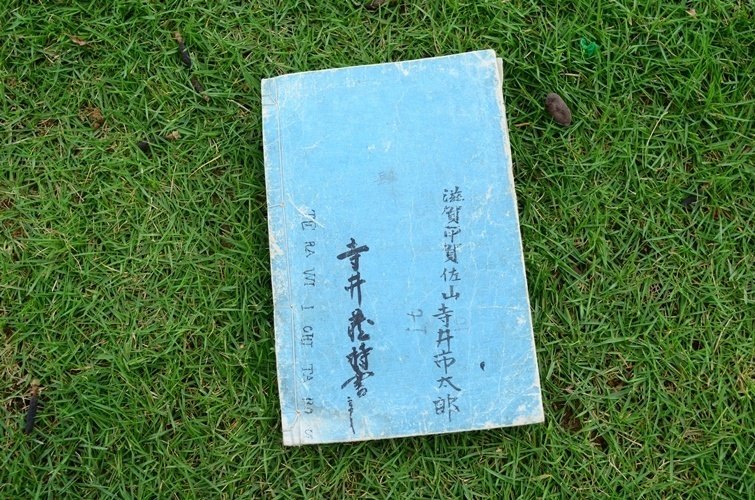 滋賀甲賀佐山寺井市太郎
寺井蔵持書
TE RA WI I CHI TA RO